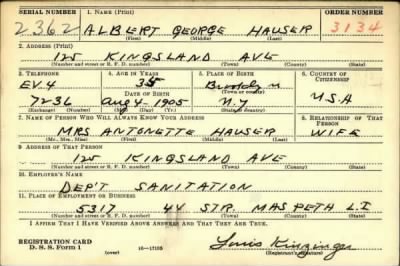 SERIAL NUMBER 1. NAME (Print) ORDER NUMBER
2362 ALBERT GEORGE HAUSER 3134
(First) (Middle) (Last)
2. ADDRESS (Print)
125 KINGSLAND AVE
(Number and street or R. F. D. number) (Town) (County) (State)
3. TELEPHONE 4. AGE IN YEARS 5. PLACE OF BIRTH 6. COUNTRY OF CITIZENSHIP
EV. 4 35 Brooklyn
DATE OF BIRTH (Town or county)
7236 Aug 4 - 1905 N.Y U.S.A
(Mo.) (Day) (Yr.) (State or country)
7. NAME OF PERSON WHO WILL ALWAYS KNOW YOUR ADDRESS 8. RELATIONSHIP OF THAT PERSON
MRS ANTONETTE HAUSER WIFE
(Mr., Mrs., Miss) (First) (Middle) (Last)
9. ADDRESS OF THAT PERSON
125 KINGSLAND AVE
(Number and street or R. F. D. number) (Town) (County) (State)
10. EMPLOYER'S NAME
DEP'T SANITATION
11. PLACE OF EMPLOYMENT OR BUSINESS
5317 44 STR. MASPETH L.I
(Number and street or R. F. D. number) (Town) (County) (State)
I AFFIRM THAT I HAVE VERIFIED ABOVE ANSWERS AND THAT THEY ARE TRUE.
REGISTRATION CARD
D. S. S. Form 1 (over) 16—17105 (Registrant's signature)